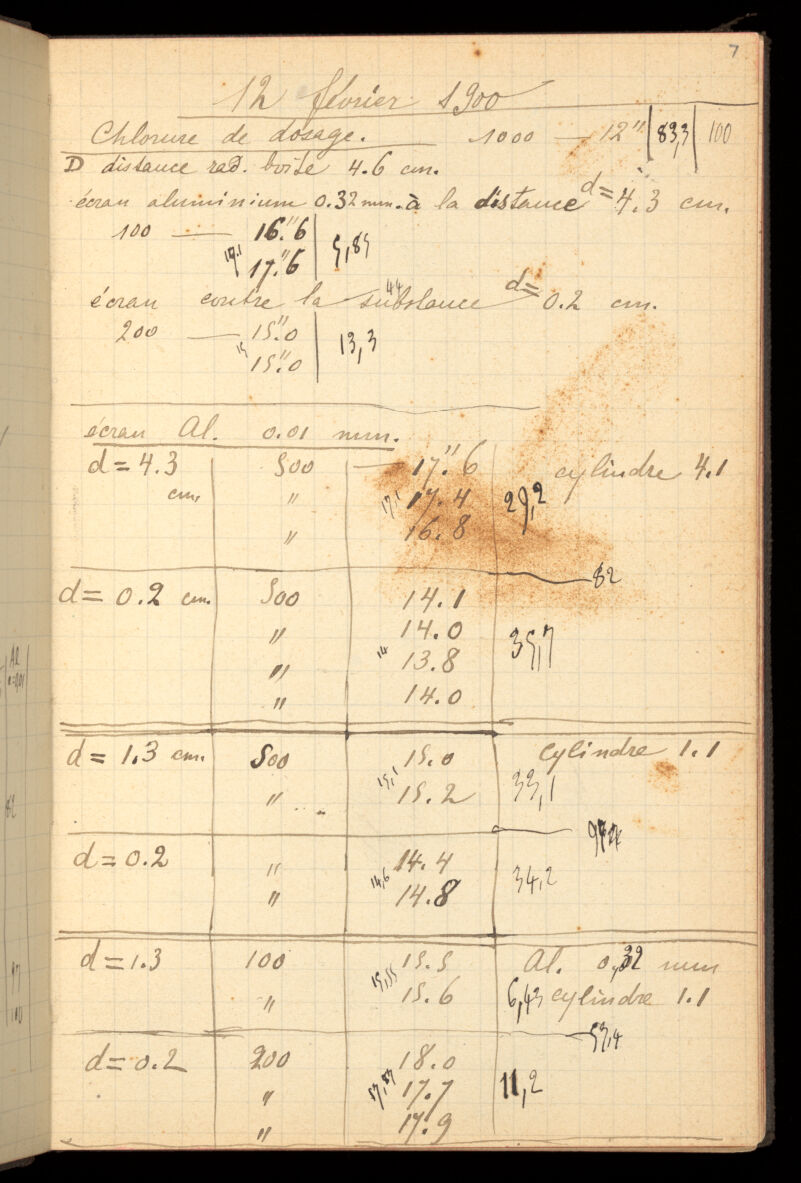 7
12 février 1900
Chlorure de dosage. 1000 — 12" 83,3 100
D distance rad. boîte 4.6 cm.
écran aluminium 0.32 mm. à la distance d = 4.3 cm.
100 — 16."6 5,85
17.1 17."6
44
écran contre la substance d = 0.2 cm.
200 — 15"0 13,3
15 15"0
écran Al. 0.01 mm.
d = 4.3 500 — 17."6 cylindre 4.1
cm. " 17,1 17.4 29,2
" 16.8
82
d = 0.2 cm. 500 14.1
" 14.0 35,7
" 14 13.8
" 14.0
d = 1.3 cm. 500 15.0 Cylindre 1.1
" 15,1 15.2 33,1
d = 0.2 " 14.4
" 14,6 14.8 34,2
d = 1.3 100 15.5 Al. 0,32 mm
" 15,55 15.6 6,43 cylindre 1.1
57,4
d = 0.2 200 18.0
" 17,87 17.7 11,2
" 17.9